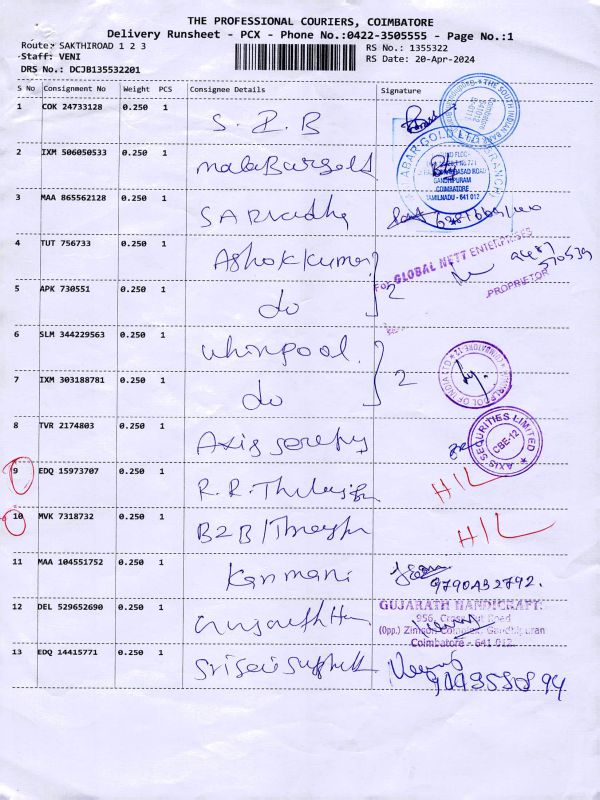 THE PROFESSIONAL COURIERS, COIMBATORE
Delivery Runsheet - PCX - Phone No.:0422-3505555 - Page No.:1
Route: SAKTHIROAD 1 2 3
RS No.: 1355322
Staff: VENI
RS Date: 20-Apr-2024
DRS No.: DCJB135532201
S No Consignment No Weight PCS Consignee Details Signature
1 COK 24733128 0.250 1 S. I. B
THE SOUTH INDIAN BANK
2 IXM 506050533 0.250 1 MalaBargold
MALABAR GOLD LTD BRANCH
GANDHIPURAM
COIMBATORE
TAMILNADU - 641 012
3 MAA 865562128 0.250 1
4 TUT 756733 0.250 1 Ashokkumar
For GLOBAL NETT ENTERPRISES
PROPRIETOR
5 APK 730551 0.250 1 do 2
6 SLM 344229563 0.250 1 whirlpool.
WHIRLPOOL OF INDIA LTD COIMBATORE-12
7 IXM 303188781 0.250 1 do 2
8 TVR 2174803 0.250 1 Axis
AXIS SECURITIES LIMITED
CBE-12
9 EDQ 15973707 0.250 1 R.R. H/L
10 MVK 7318732 0.250 1 B2B H/L
11 MAA 104551752 0.250 1 Kanmani
12 DEL 529652690 0.250 1
GUJARATH HANDICRAFT
956, Cross Cut Road
(Opp.) Zimson Complex, Gandhipuran
Coimbatore - 641 012
13 EDQ 14415771 0.250 1 Srisai